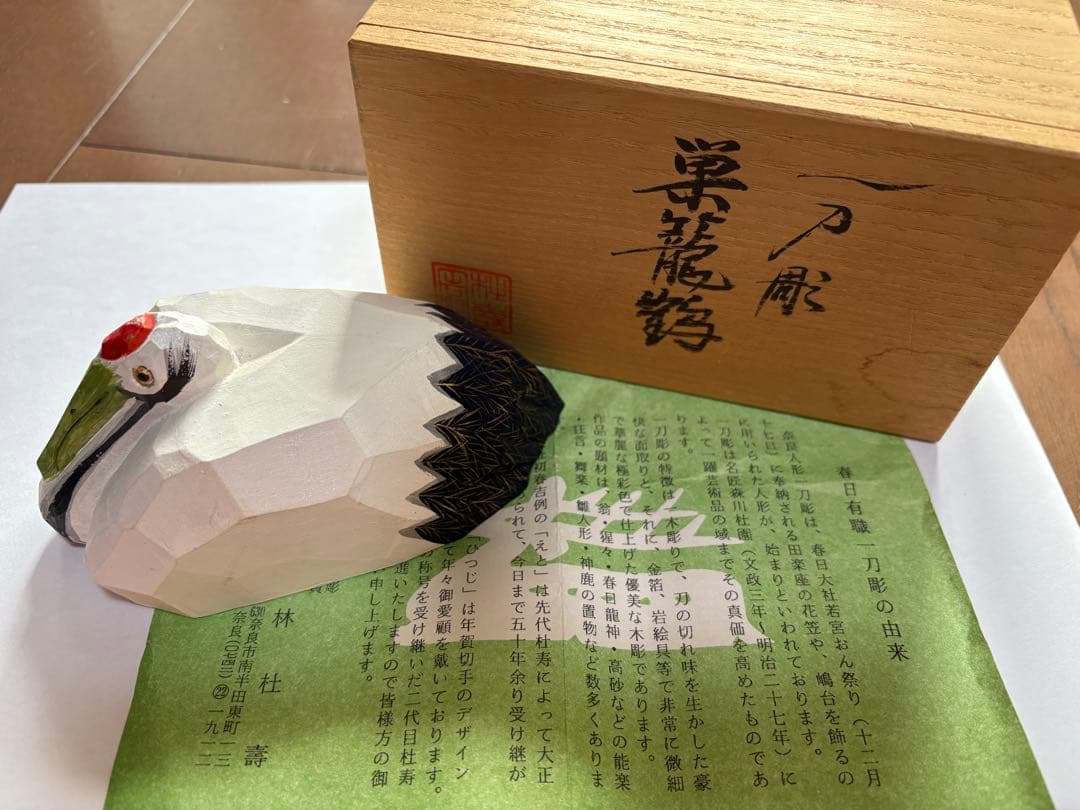 一刀彫
巣籠鶴
春日有職一刀彫の由来
奈良人形一刀彫は、春日大社若宮おん祭り（十二月
十七日）に奉納される田楽座の花笠や、鳩台を飾るの
に用いられた人形が、始まりといわれております。
一刀彫は名匠森川杜園（文政三年〜明治二十七年）に
よって一躍芸術品の域までその真価を高めたものであ
ります。
一刀彫の特徴は、木彫りで、刀の切れ味を生かした豪
快な面取りと、それに、金箔、岩絵具等で非常に微細
で華麗な極彩色で仕上げた優美な木彫であります。
作品の題材は、翁・猩々・春日龍神・高砂などの能楽
・狂言・舞楽・雛人形・神鹿の置物など数多くありま
初春吉例の「えと」は先代杜寿によって大正
られて、今日まで五十年余り受け継が
ひつじ」は年賀切手のデザイン
て年々御愛顧を戴いております。
の称号を受け継いだ二代目杜寿
進いたしますので皆様方の御
申し上げます。
彫
林杜壽
630奈良市南半田東町一三
奈良(〇七四二)㉒一九一二